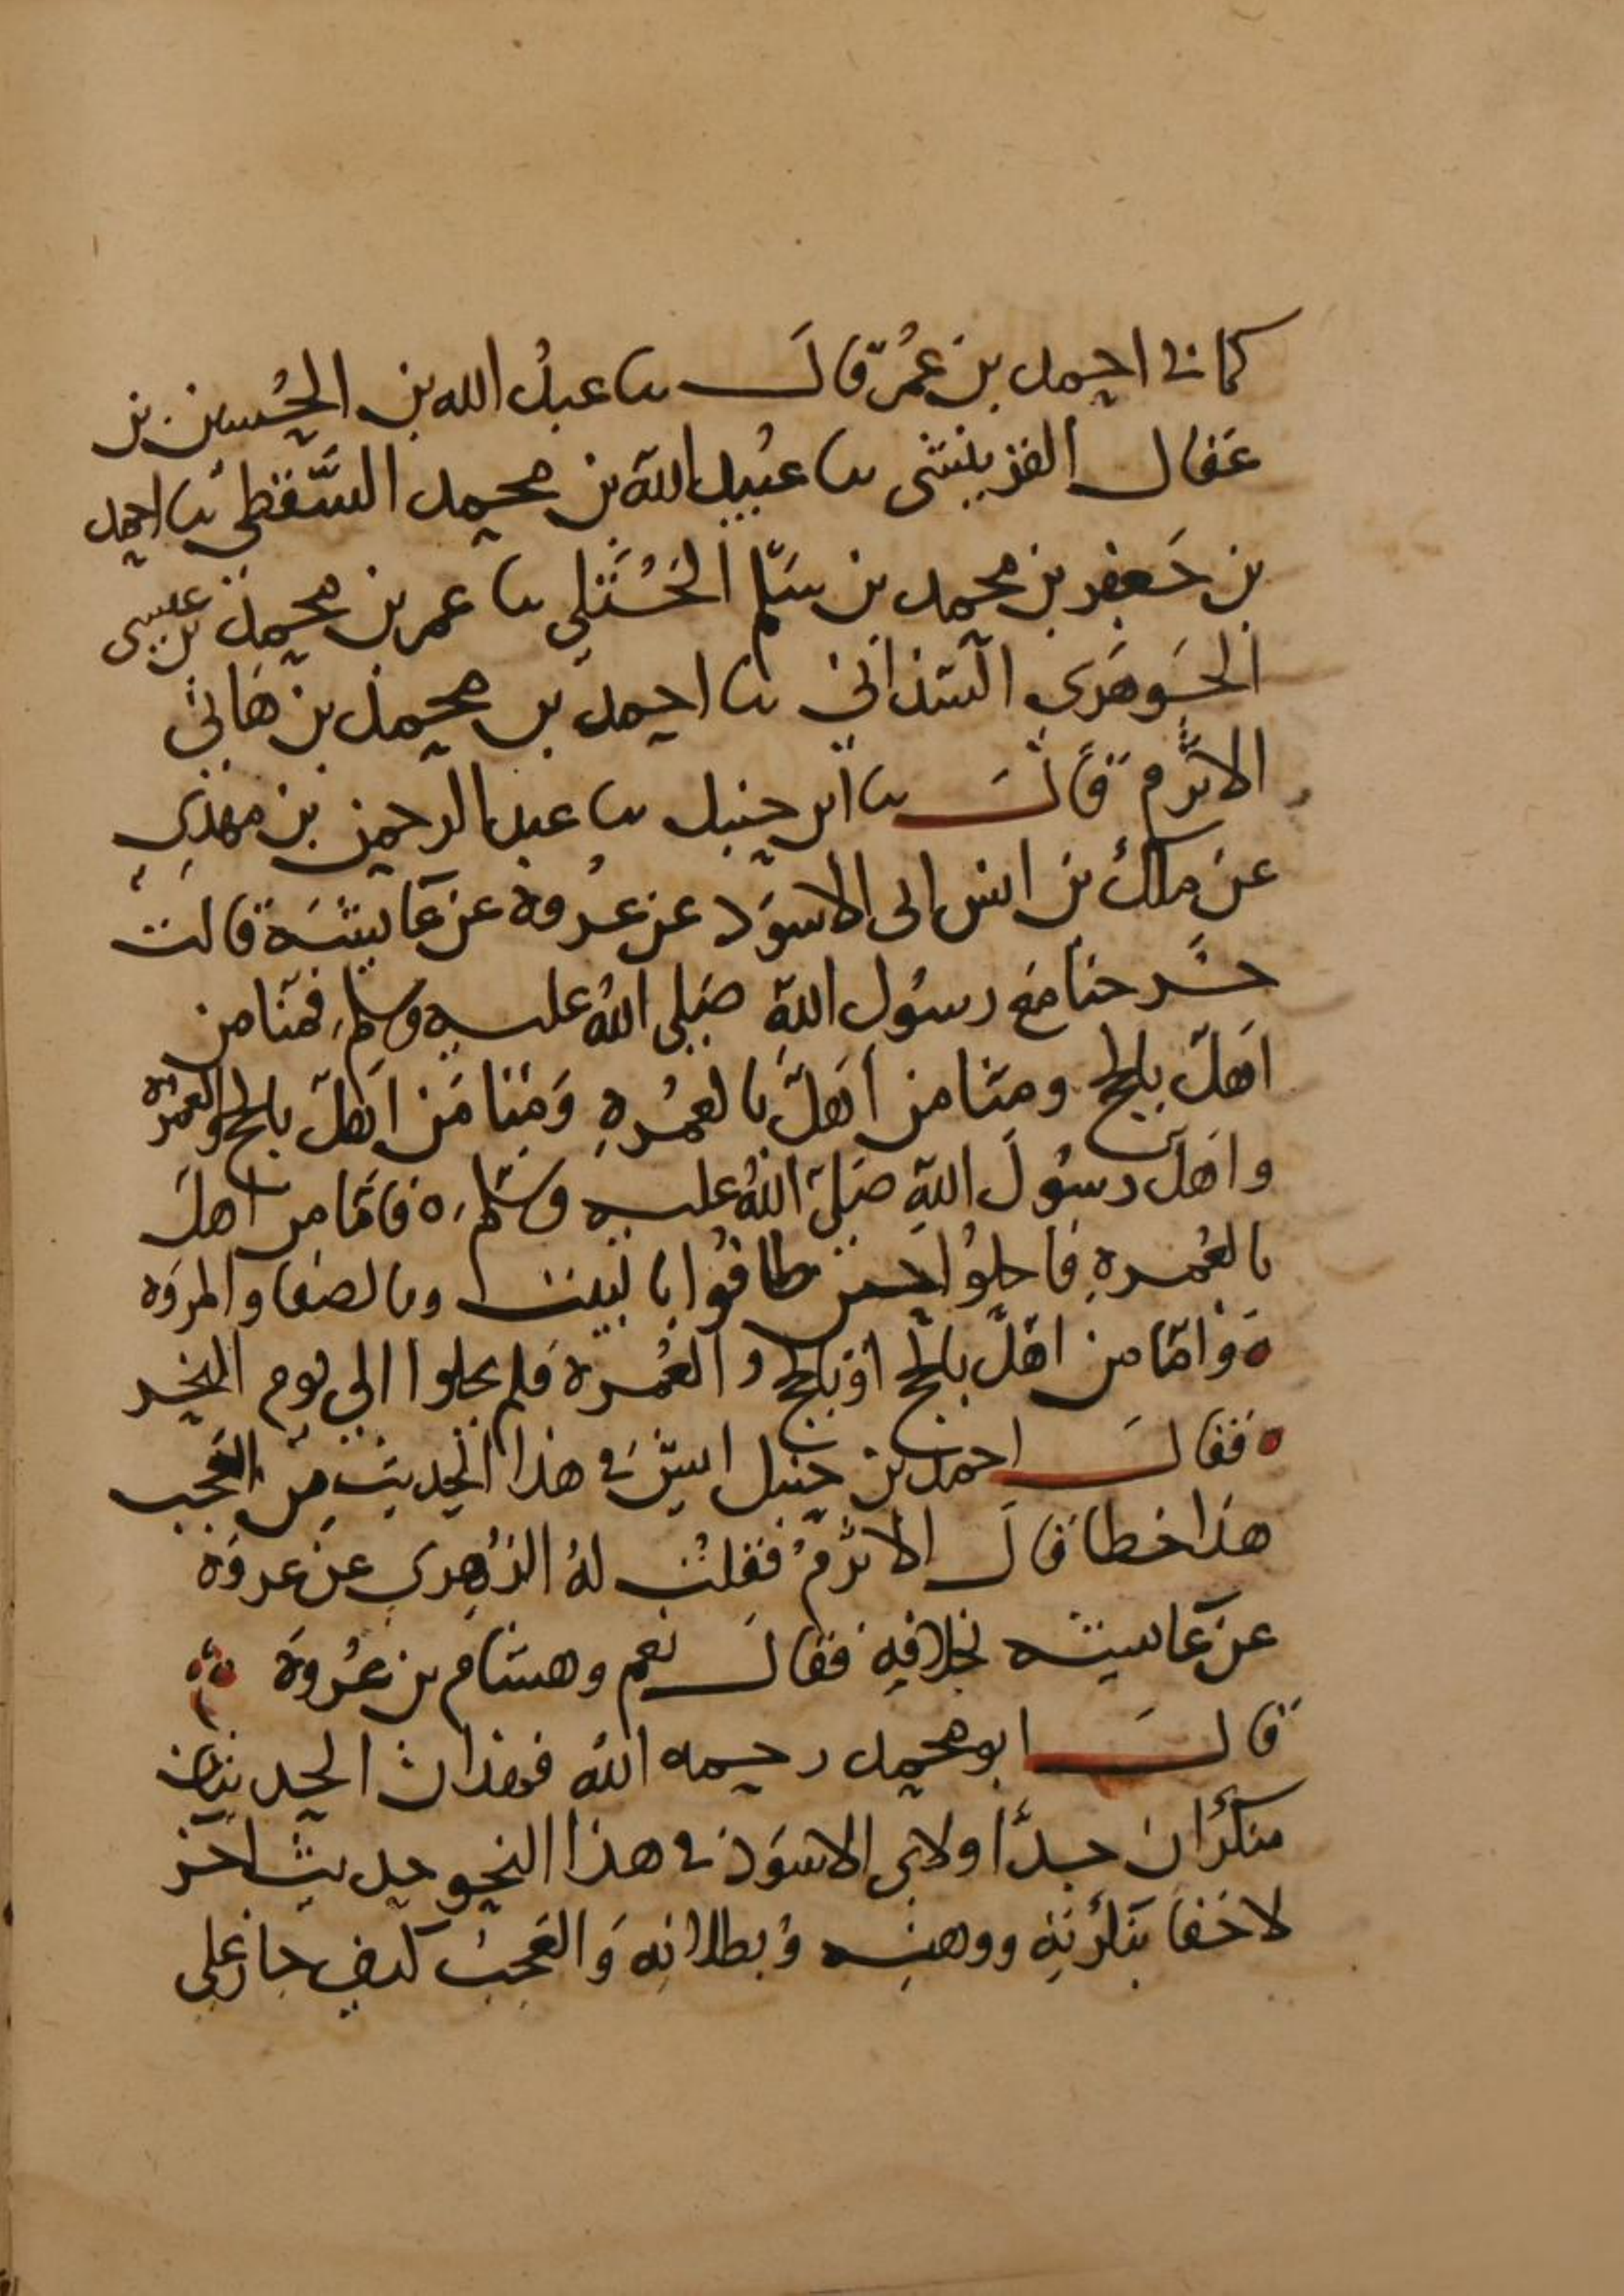 كما نى احمد بن عُمر قالَ نا عبدُ الله بن الحُسين بن
عقال الفرينشى نا عُبيد الله بن محمد السَّقطي نا احمد
بن جَعفر بن محمد بن سَلْم الخُتَّلي نا عمر بن محمد بن عيسى
الجَوهَري السذاني نا احمد بن محمد بن هَاني
الاثرم قالَ نا ابن حنبل نا عبد الرحمن بن مهدي
عن مالك بن انس ابى الاسوَد عن عُروة عن عَايشَة قالت
خَرجنا مَع رسُول اللهِ صَلى اللهُ عليه وسلم فمنا من
اهلّ بالحج ومنا من اَهلّ بالعُمرهِ وَمنا مَن اهلّ بالحج والعمرة
واهلّ رسُولَ اللهِ صَلىّ اللهُ عليه وسَلم ه فاَمّا من اَهلَ
بالعُمرهِ فاحلوُا حين طافوُا بالبيت وبالصفا والمروَة
ه وَامّا من اهَلّ بالحج اوْ بالحج والعُمرة فلم يحلوا الي يوم النحر
ه فَقالَ احمد بن حنبل ايشَ في هذا الحديث مِن العَجب
هذا خطا قالَ الاثرمُ فقلتُ لهُ الزُهري عن عروَة
عن عَايشه بخلافِهِ فقالَ نعم وهشام بن عُروَة
قالَ ابو محمد رحمه الله فهذان الحديثان
منكرَان جدًا ولابى الاسوَد في هذا النحو حديث اخر
لا خفا بنكرَتِهِ ووهنِه وُبطلانِهِ وَالعَجبُ كيف جَازَ على